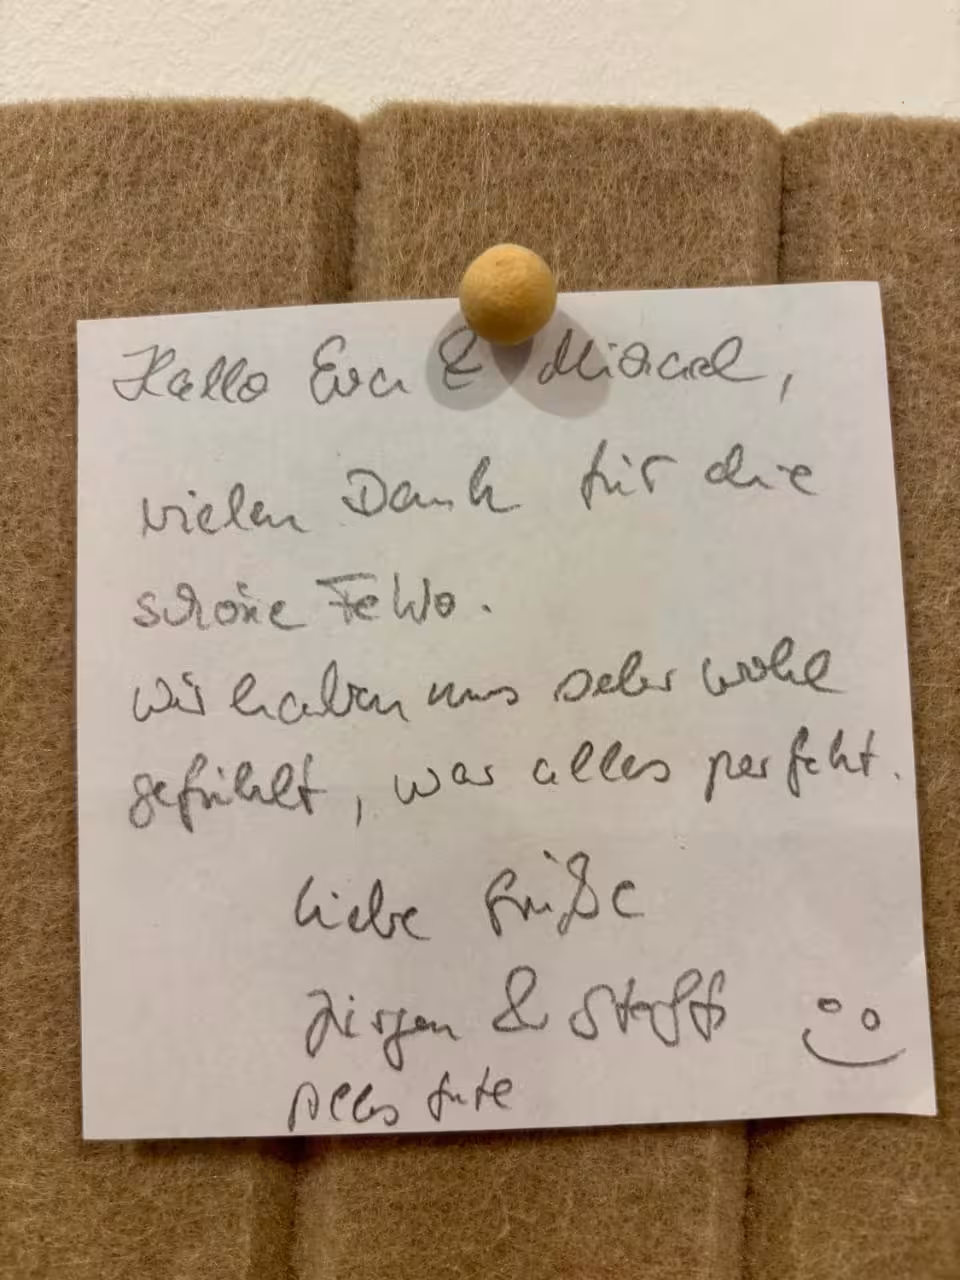 Hallo Eva & Michael,
vielen Dank für die
schöne FeWo.
Wir haben uns sehr wohl
gefühlt, war alles perfekt.
Liebe Grüße
Jürgen & Steffi
Alles Gute